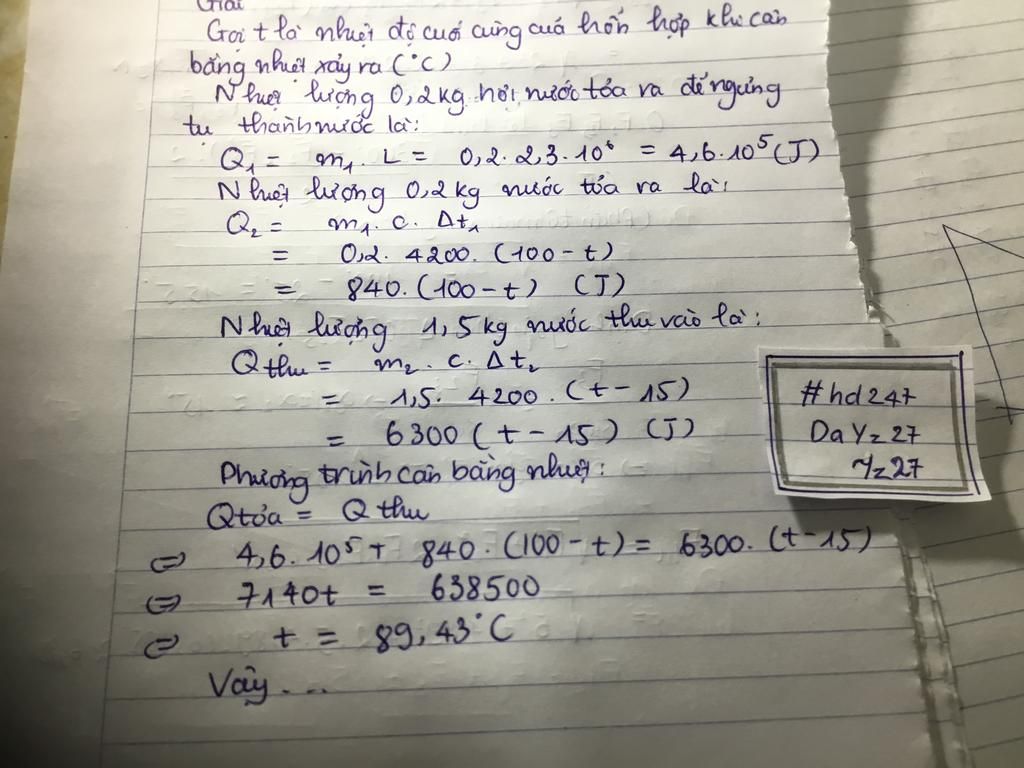 Giải
Gọi t là nhiệt độ cuối cùng của hỗn hợp khi cân
bằng nhiệt xảy ra (°C)
Nhiệt lượng 0,2kg hơi nước tỏa ra để ngưng
tụ thành nước là:
Q₁ = m₁. L = 0,2. 2,3.10⁶ = 4,6.10⁵ (J)
Nhiệt lượng 0,2kg nước tỏa ra là:
Q₂ = m₁. c. Δt₁
= 0,2. 4200. (100-t)
= 840.(100-t) (J)
Nhiệt lượng 1,5kg nước thu vào là:
Q thu = m₂. c. Δt₂
= 1,5. 4200. (t-15)
= 6300(t-15) (J)
Phương trình cân bằng nhiệt:
Q tỏa = Q thu
⇔ 4,6.10⁵ + 840.(100-t) = 6300.(t-15)
⇔ 7140t = 638500
⇔ t = 89,43°C
Vậy...
#hd247
DaYz27
Yz27